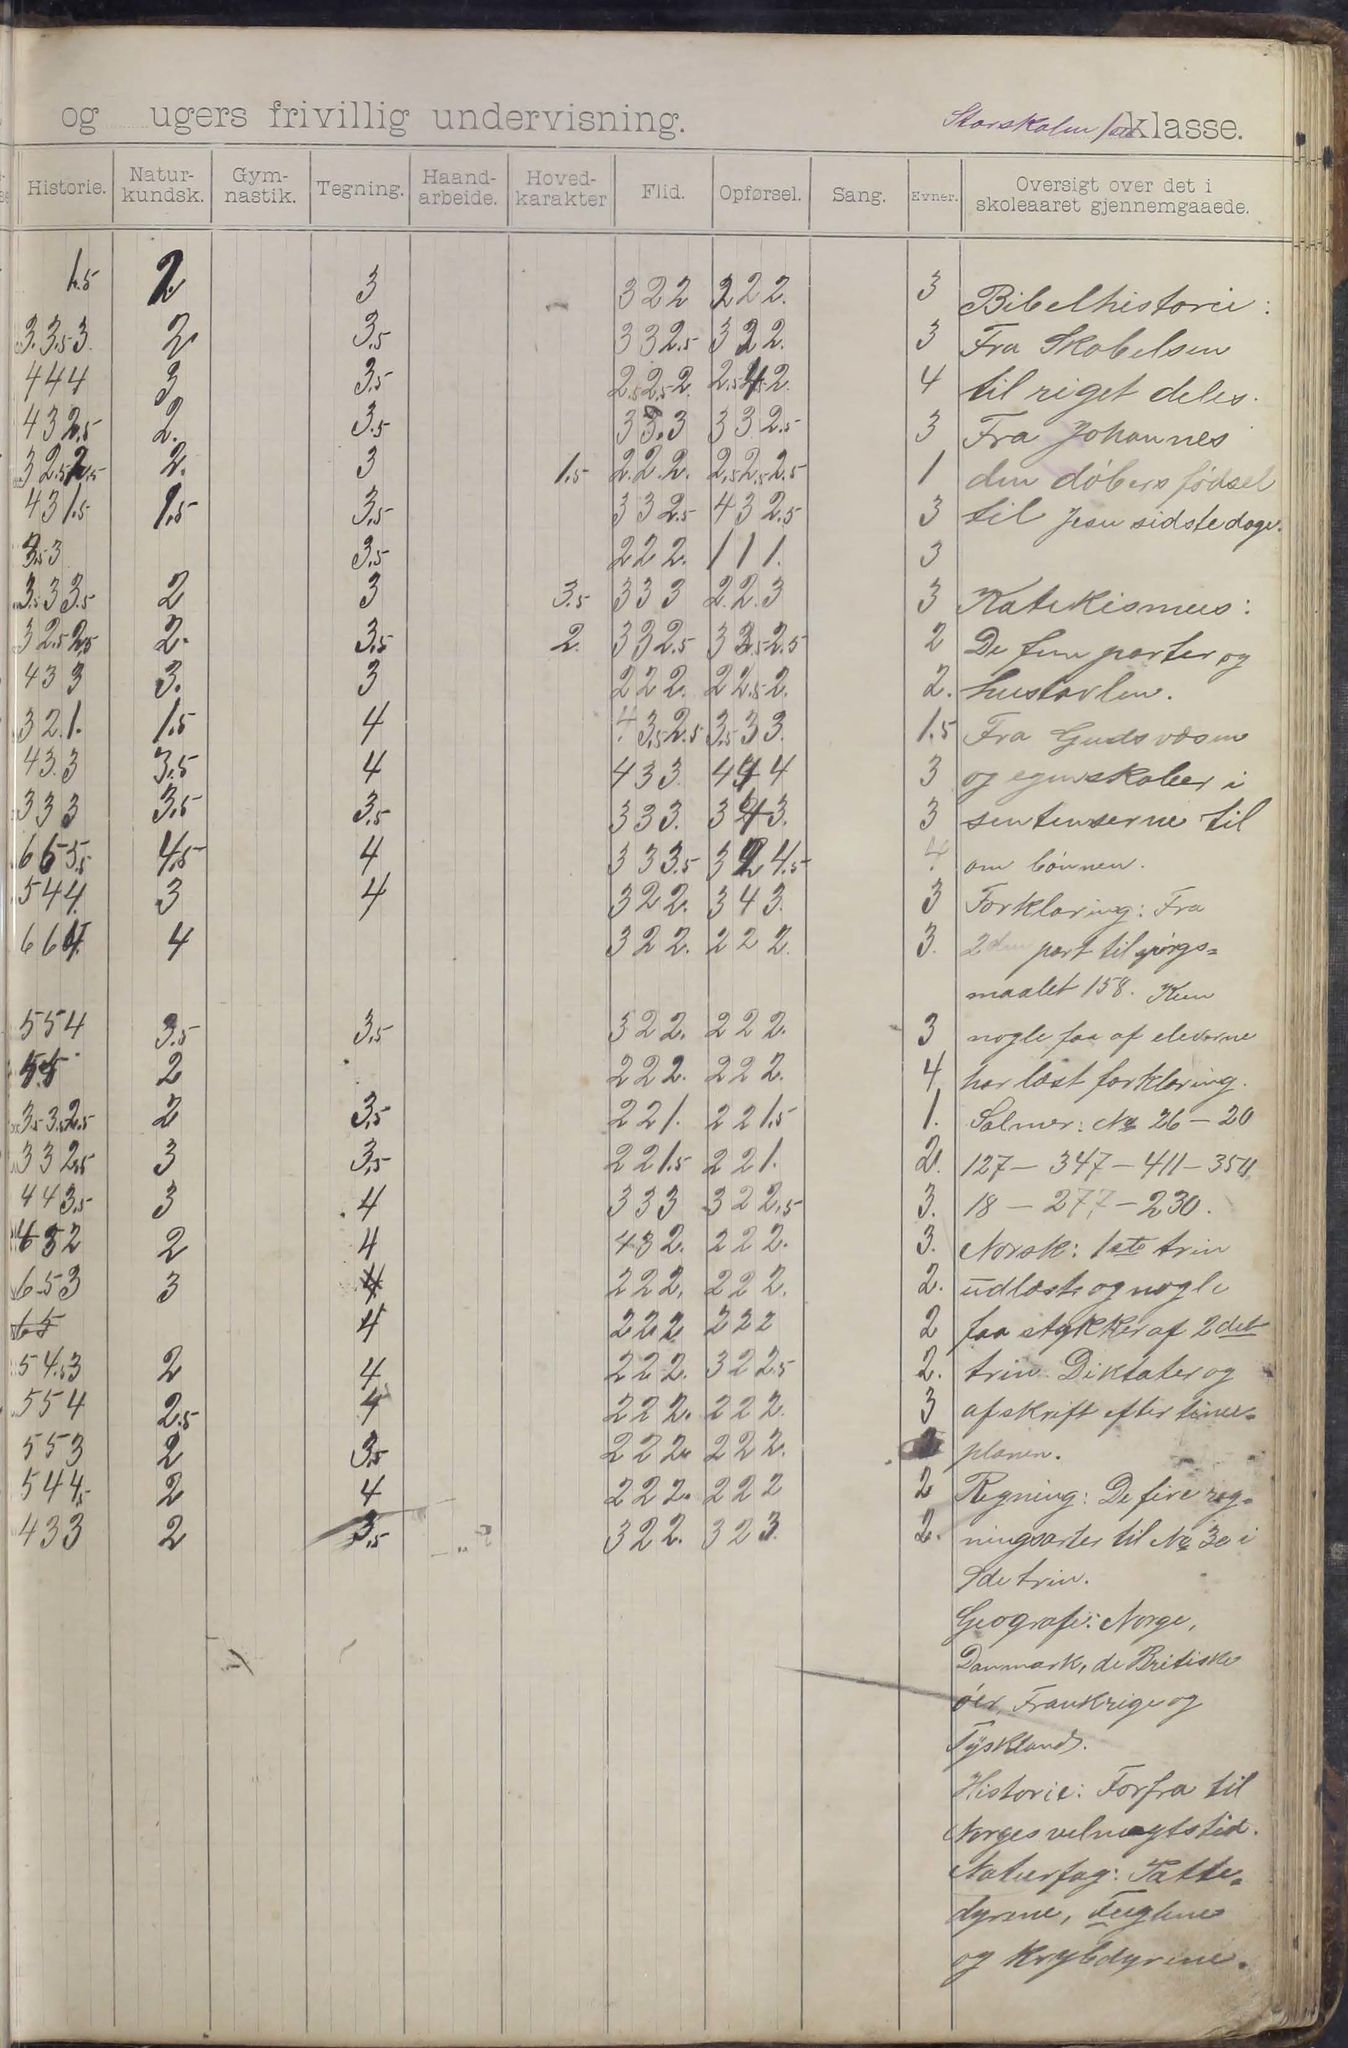 og ugers frivillig undervisning. Storskolen klasse.
Historie. Natur- kundsk. Gym- nastik. Tegning. Haand- arbeide. Hoved- karakter Flid. Opførsel. Sang. Evner. Oversigt over det i skoleaaret gjennemgaaede.
1.5 2 3 322 222. 3 Bibelhistorie:
3.3.53. 2 3.5 332.5 322. 3 Fra Skabelsen
444 3 3.5 2.52.52. 4 til riget deles.
432.5 2. 3.5 33.3 332.5 3 Fra Johannes
32.52.5 2. 3 1.5 2.2.2. 2.52.52.5 1 den døbers fødsel
431.5 1.5 3.5 332.5 432.5 3 til Jesu sidste dage.
3.53 3.5 222. 111. 3
3.533.5 2 3 3.5 333 2.2.3 3 Katekismus:
32.52.5 2. 3.5 2. 332.5 2 De fem parter og
433 3. 3 222. 22.52. 2. hustavlen.
321. 1.5 4 43.52.5 3.533. 1.5 Fra Guds væsen
43.3 3.5 4 433. 444 3 og egenskaber i
333 3.5 3.5 333. 343. 3 sentenserne til
665.5 4.5 4 333.5 324.5 4 om bønnen.
544. 3 4 322. 343. 3 Forklaring: Fra
664. 4 322. 222. 3. 2den part til spørgs=
maalet 158. Kun
554 3.5 3.5 322. 222. 3 nogle faa af eleverne
5.5 2 222. 222. 4 har læst forklaring.
3.53.52.5 2 3.5 221. 221.5 1. Salmer: No 26 – 20
332.5 3 3.5 221.5 221. 2. 127 – 347 – 411 – 354,
443.5 3 4 333 322.5 3. 18 – 277 – 230.
632 2 4 432. 222. 3. Norsk: 1ste trin
653 3 4 222. 222. 2. udlæst og nogle
65 4 222 222 2 faa stykker af 2det
54.53 2 4 222. 322.5 2. trin. Diktater og
554 2.5 4 222. 222. 3 afskrift efter time=
553 2 3.5 222. 222. planen.
544.5 2 4 222. 222 2 Regning: De fire reg=
433 2 3.5 322. 323. 2. ningsarter til No 30 i
de trin.
Geografi: Norge,
Danmark, de Britiske
øer, Frankrige og
Tyskland.
Historie: Forfra til
Norges velmagtstid.
Naturfag: Patte=
dyrene, Fuglene
og Krybdyrene.